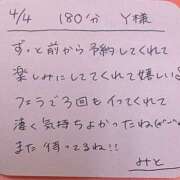 4/4 180分 Y様
ずっと前から予約してくれて
楽しみにしててくれて嬉しい
フェラで3回もイってくれて
凄く気持ちよかったね(*´ー`*)
また待ってるね!!
みと